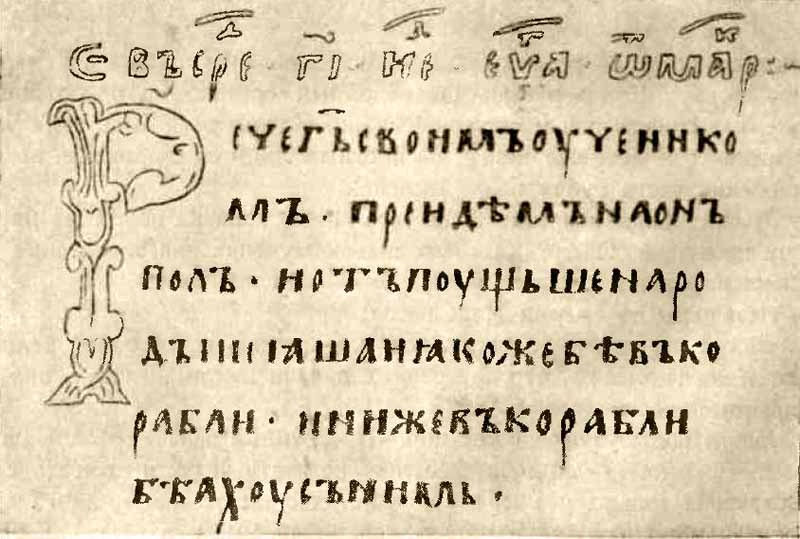 С҃ въ сре · г҃і · не · еѵ҃а · ѿ мар :~
Рече г҃ь своимъ оученико
мъ · преидѣмъ на онъ
полъ · и отъпоущьше наро
дъ и ꙗкоже бѣ въ ко
рабли · и ини же въ корабли
бѣахоу съ нимь ·